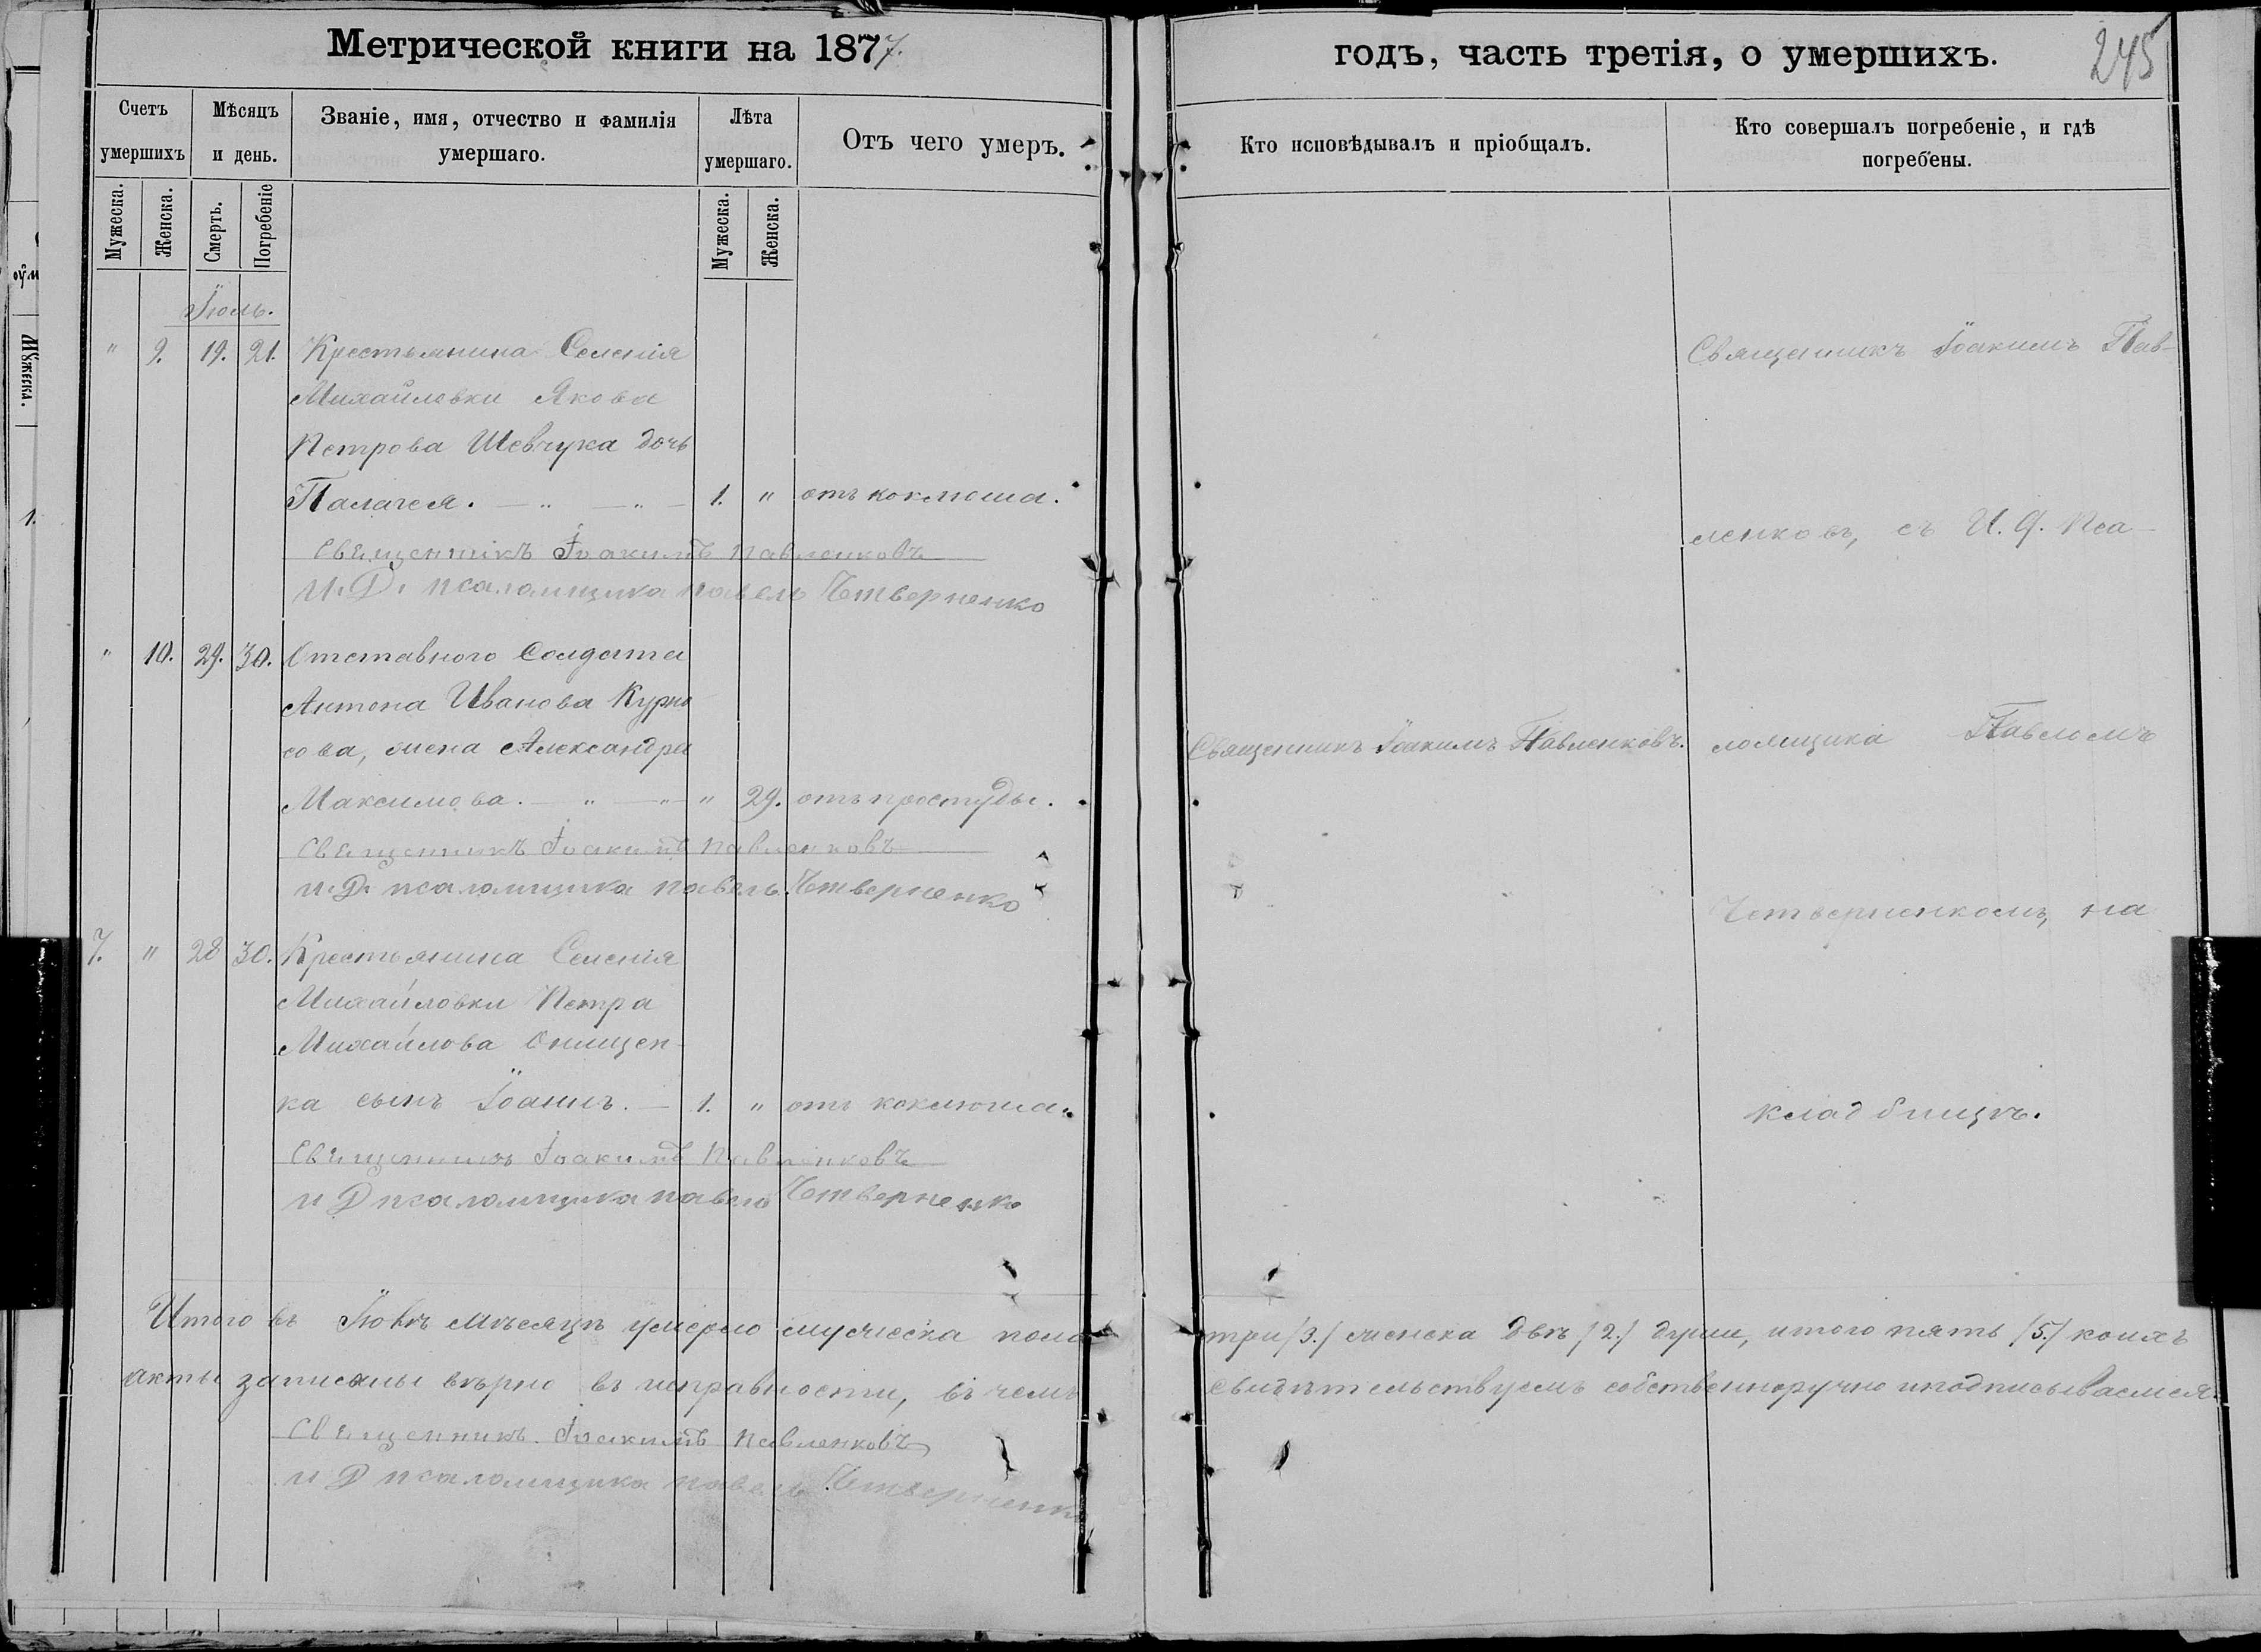 Метрической книги на 1877. годъ, часть третія, о умершихъ.
245
Счетъ умершихъ
Мѣсяцъ и день.
Званіе, имя, отчество и фамилія умершаго.
Лѣта умершаго.
Отъ чего умеръ.
Кто исповѣдывалъ и пріобщалъ.
Кто совершалъ погребеніе, и гдѣ погребены.
Мужеска.
Женска.
Смерть.
Погребеніе
Мужеска.
Женска.
Іюль.
" 9. 19. 21. Крестьянина Селенія
Михайловки Якова
Петрова Шевчука дочь
Палагея. — " — " — 1. " отъ коклюша.
Священникъ Іоакимъ Павленковъ
И. Д. псаломщика Павелъ Четверненко
" 10. 29. 30. Отставного Солдата
Антона Иванова Курно
сова, жена Александра
Максимова. — " — " — " 29. отъ простуды.
Священникъ Іоакимъ Павленковъ
И. Д. псаломщика Павелъ Четверненко
7. " 28 30. Крестьянина Селенія
Михайловки Петра
Михайлова Онищен
ка сынъ Іоаннъ. — 1. " отъ коклюша.
Священникъ Іоакимъ Павленковъ
И Д псаломщика Павелъ Четверненко
Священникъ Іоакимъ Павленковъ.
Священникъ Іоакимъ Пав-
ленковъ, съ И. Д. Пса-
ломщика Павломъ
Четверненкомъ, на
кладбищѣ.
Итого въ мѣсяцѣ умерло мужеска пола три /3./ женска двѣ /2./ души, итого пять /5./ коихъ
акты записаны вѣрно въ исправности, въ чемъ свидѣтельствуемъ собственноручно и подписываемся.
Священникъ Іоакимъ Павленковъ
И Д псаломщика Павелъ Четверненко